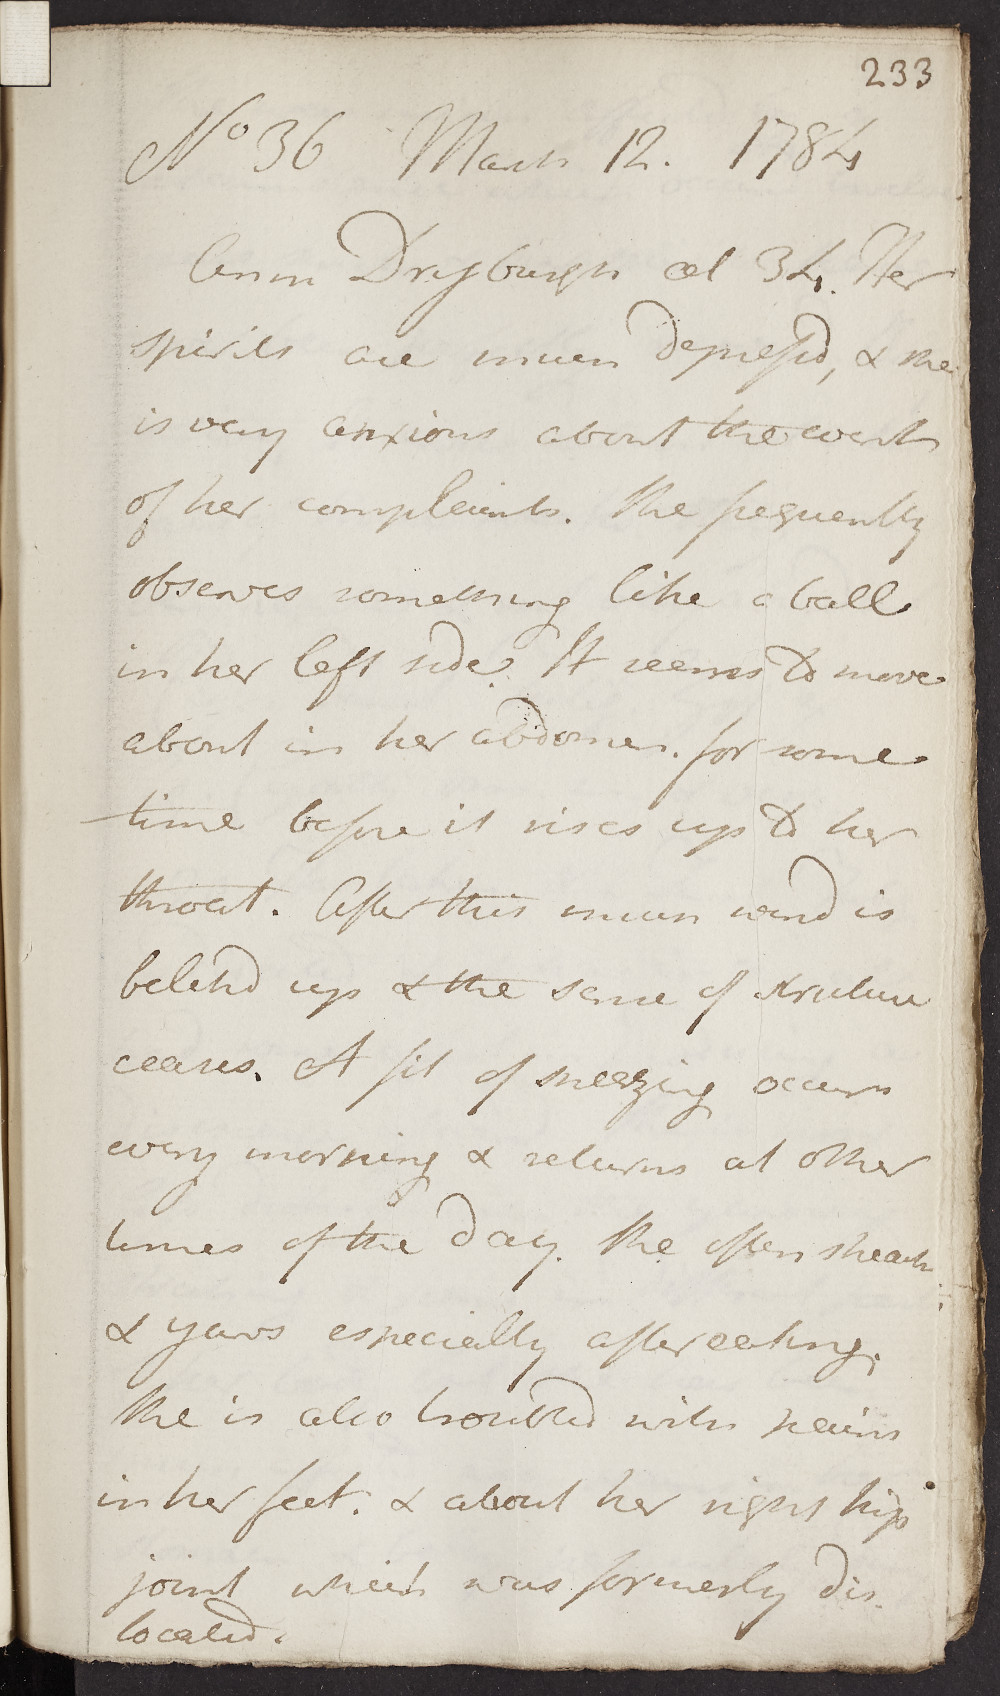 233
No 36 March 12. 1784
Ann Dryburgh æt 34. Her
spirits are much depressed, & she
is very anxious about the event
of her complaints. She frequently
observes something like a ball
in her left side. It seems to move
about in her abdomen. for some
time before it rises up to her
throat. After this much wind is
belched up & the sense of stricture
ceases. A fit of sneezing occurs
every morning & returns at other
times of the day. She often
& yawns especially after eating.
She is also troubled with pains
in her feet. & about her right hip
joint which was formerly dis-
located.